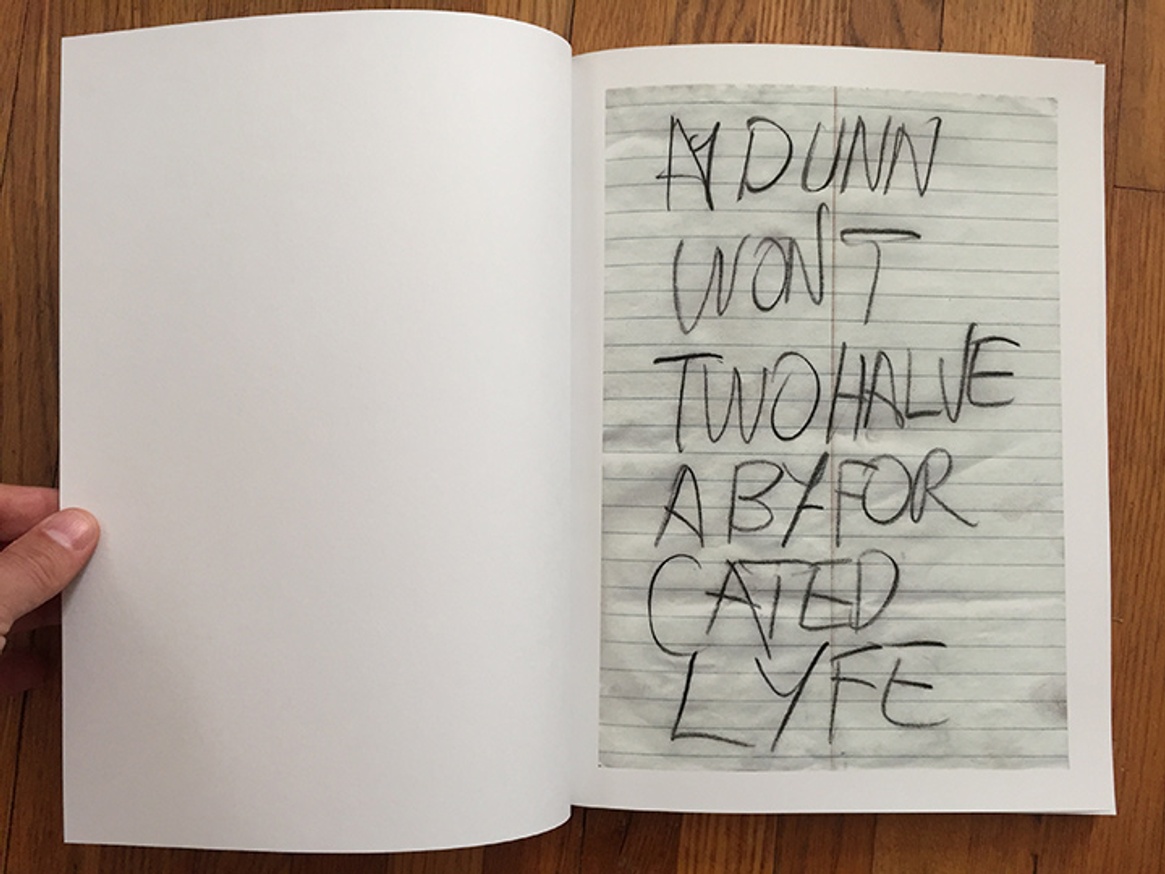 AY DUNN
WONT
TWO HALVE
A BYFOR
CATED
LYFE